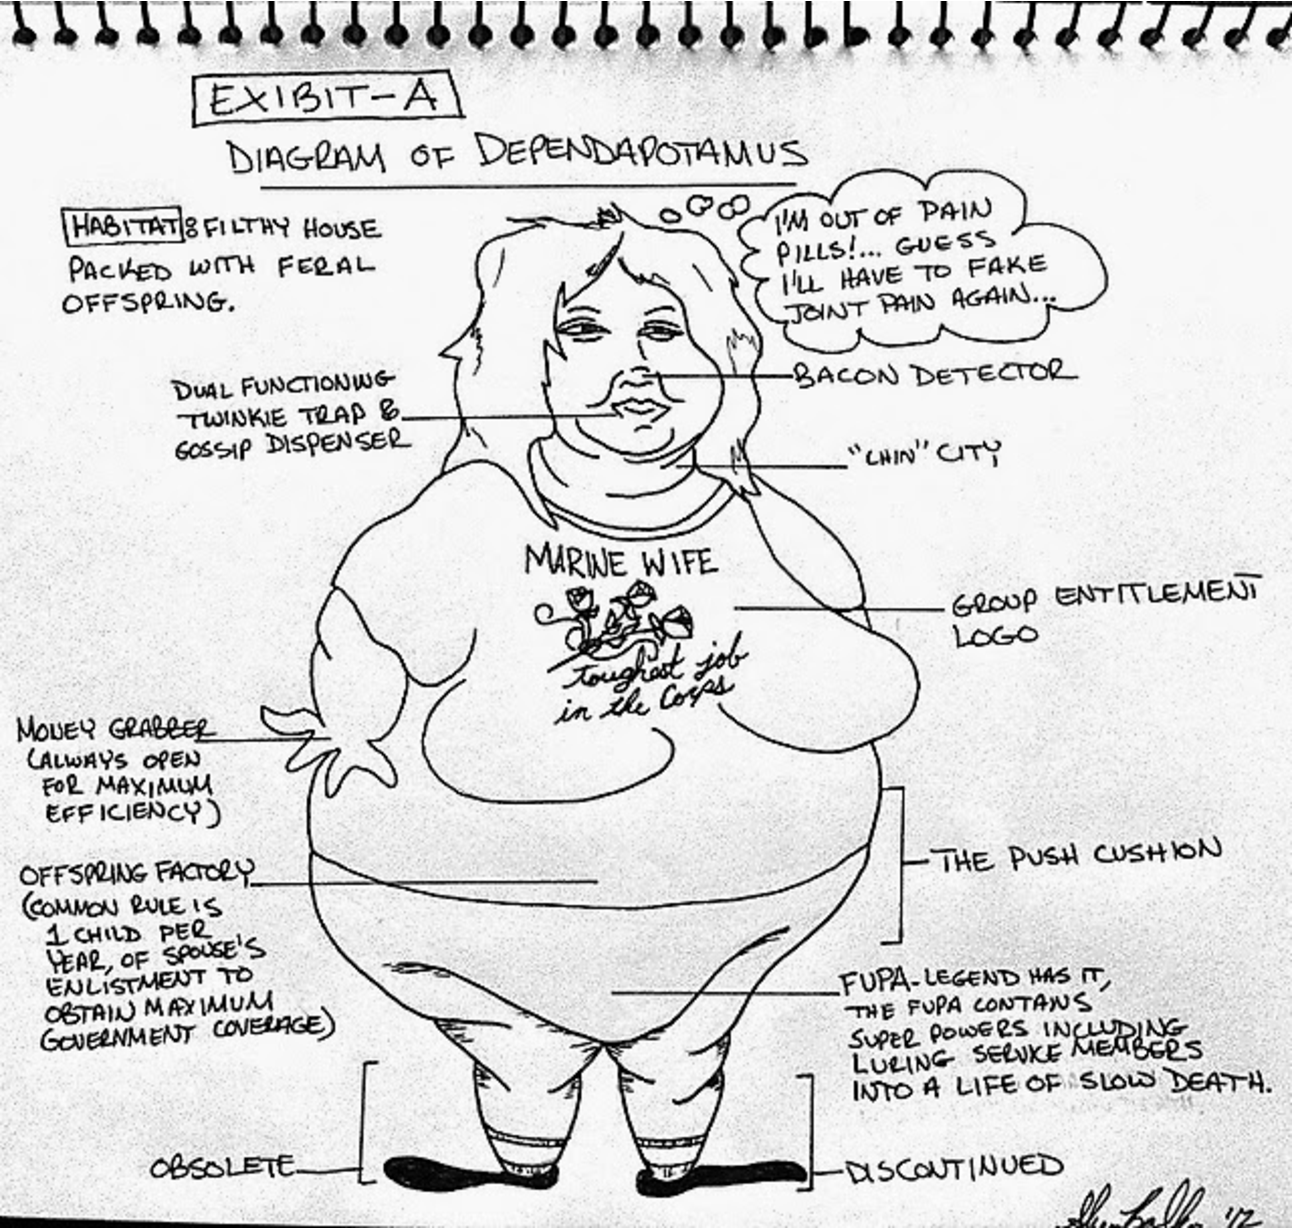 EXIBIT-A
DIAGRAM OF DEPENDAPOTAMUS
HABITAT8 FILTHY HOUSE
PACKED WITH FERAL
OFFSPRING.
I'M OUT OF PAIN
PILLS!... GUESS
I'LL HAVE TO FAKE
JOINT PAIN AGAIN...
DUAL FUNCTIONING
TWINKIE TRAP &
GOSSIP DISPENSER
BACON DETECTOR
"CHIN" CITY
MARINE WIFE
toughest job
in the Corps
GROUP ENTITLEMENT
LOGO
MONEY GRABBER
(ALWAYS OPEN
FOR MAXIMUM
EFFICIENCY)
OFFSPRING FACTORY
(COMMON RULE IS
1 CHILD PER
YEAR, OF SPOUSE'S
ENLISTMENT TO
OBTAIN MAXIMUM
GOVERNMENT COVERAGE)
THE PUSH CUSHION
FUPA-LEGEND HAS IT,
THE FUPA CONTAINS
SUPER POWERS INCLUDING
LURING SERVICE MEMBERS
INTO A LIFE OF SLOW DEATH.
OBSOLETE
DISCONTINUED
'12